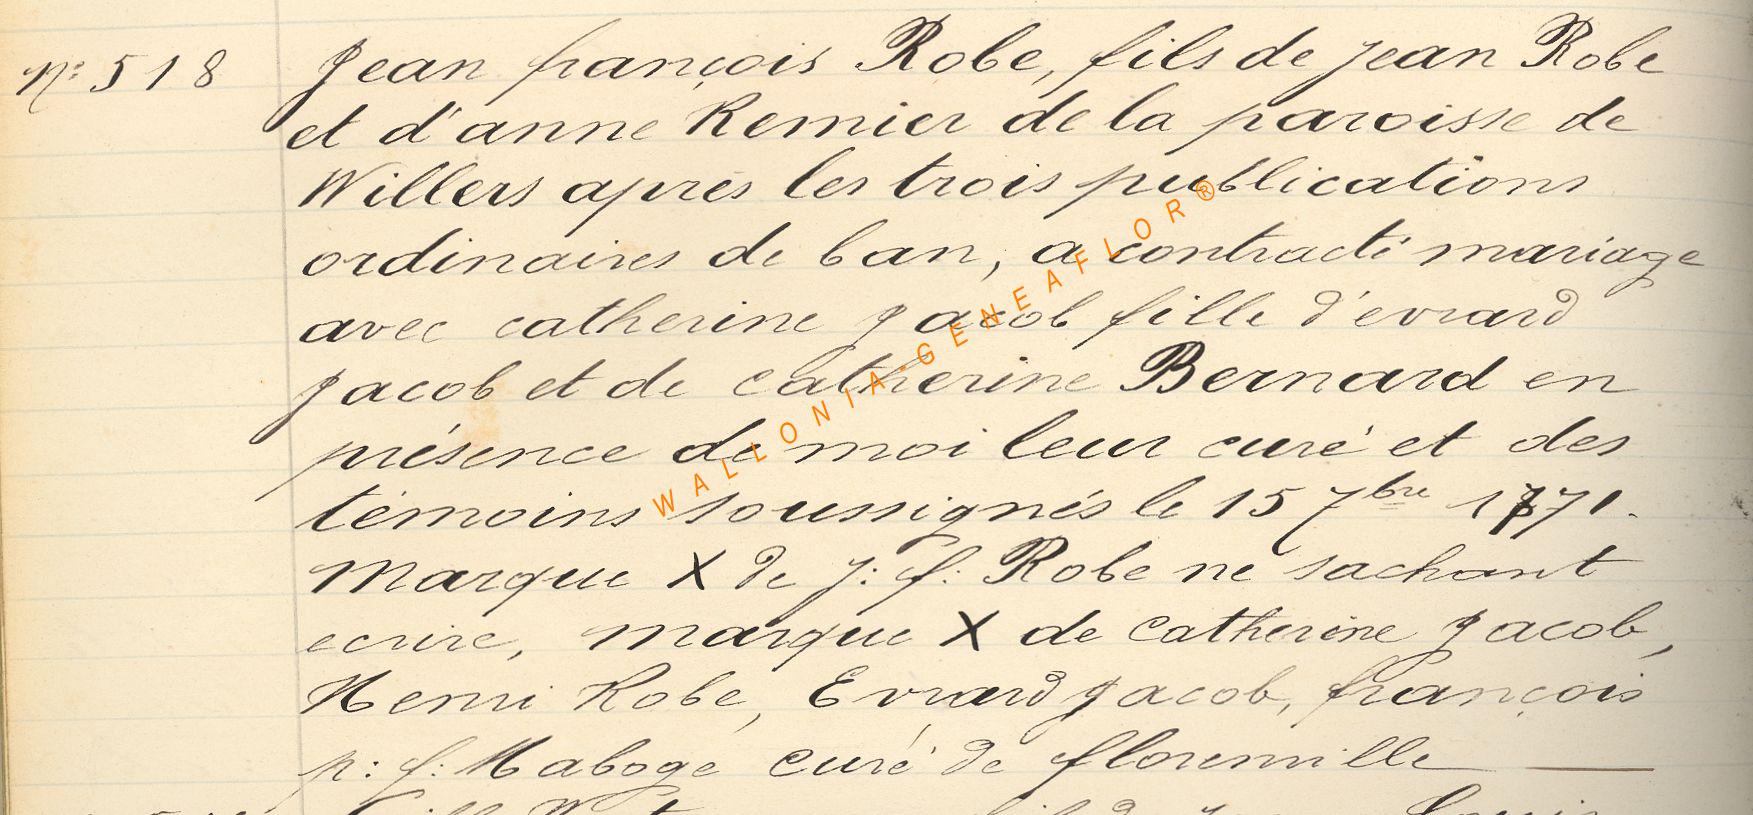 N° 518 Jean françois Robe, fils de jean Robe
et d'anne Remier de la paroisse de
Willers après les trois publications
ordinaires de ban, a contracté mariage
avec catherine Jacob fille d'evrard
Jacob et de catherine Bernard en
présence de moi leur curé et des
témoins soussignés le 15 7bre 1771.
Marque X de j: f: Robe ne sachant
ecrire, marque X de Catherine Jacob,
Henri Robe, Evrard Jacob, françois
p: f: Maboge curé de florenville
WALLONIA-GENEAFLOR®